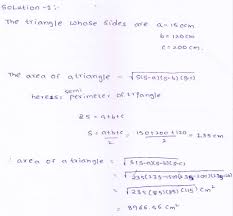 Solution-1:-
The triangle whose sides are a=150cm
b=120cm
c=200cm.
The area of a triangle = √s(s-a)(s-b)(s-c)
semi
here s = perimeter of triangle
2S = a+b+c
S = a+b+c/2 = 150+200+120/2 = 235cm
∴ area of a triangle = √s(s-a)(s-b)(s-c)
= √235(235-150)(235-200)(235-120) cm²
= √235(85)(35)(115) cm²
= 8966.56 cm²